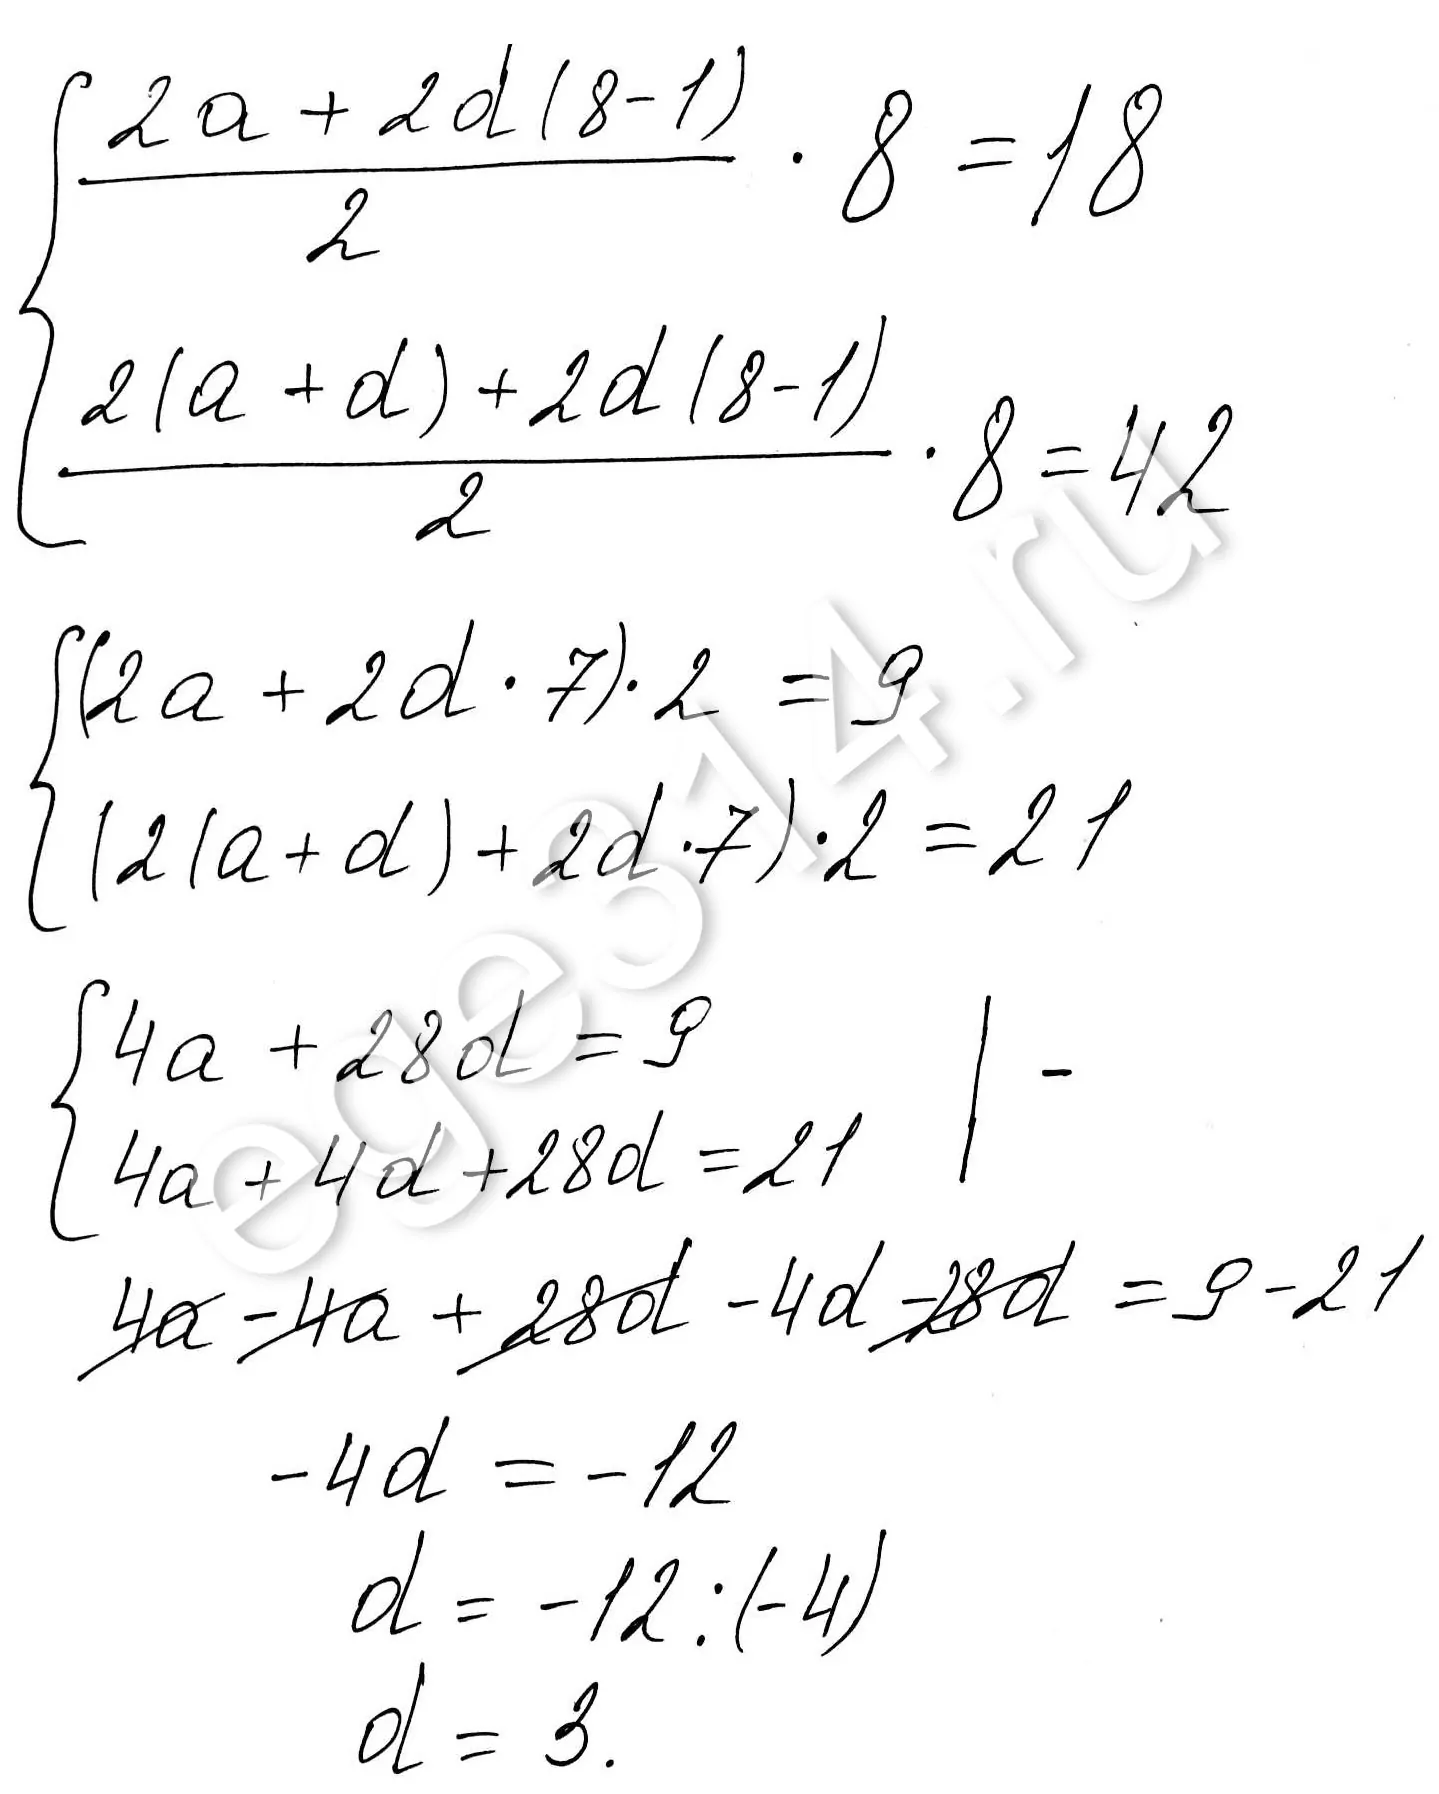 (2a + 2d(8-1))/2 · 8 = 18
(2(a+d) + 2d(8-1))/2 · 8 = 42
(2a + 2d · 7) · 2 = 9
(2(a+d) + 2d · 7) · 2 = 21
4a + 28d = 9 | -
4a + 4d + 28d = 21
4a - 4a + 28d - 4d - 28d = 9 - 21
-4d = -12
d = -12 : (-4)
d = 3.
ege314.ru